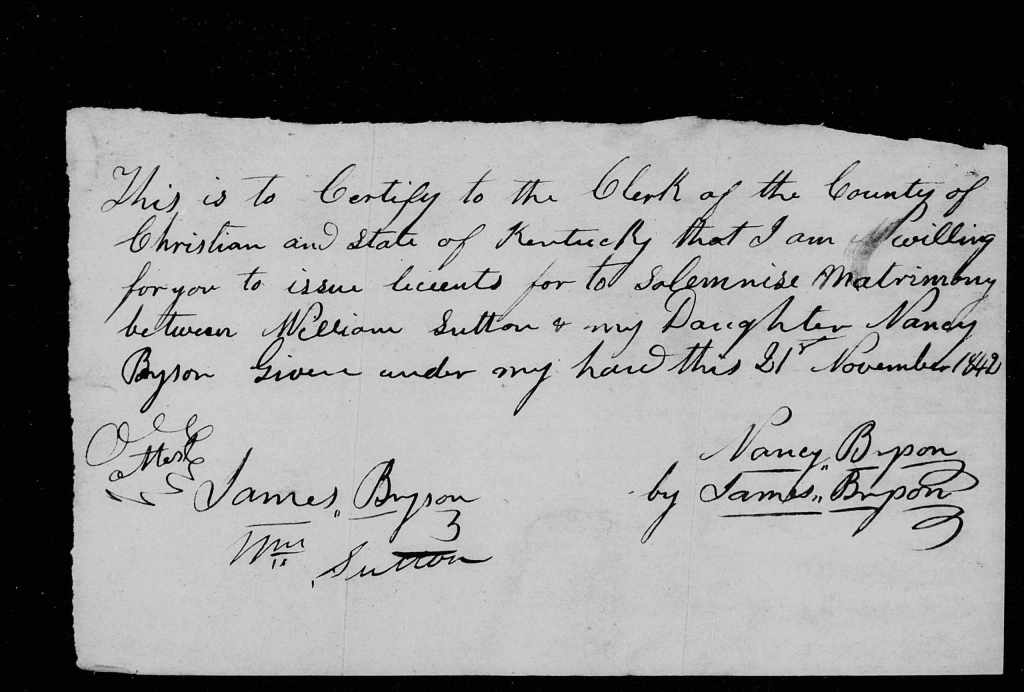 This is to Certify to the Clerk of the County of
Christian and State of Kentucky that I am willing
for you to issue licents for to Solemnise Matrimony
between William Sutton & my Daughter Nancy
Bryson Given under my hand this 21st November 1842
attest
Nancy Bryson
James Bryson
by James Bryson
Wm Sutton